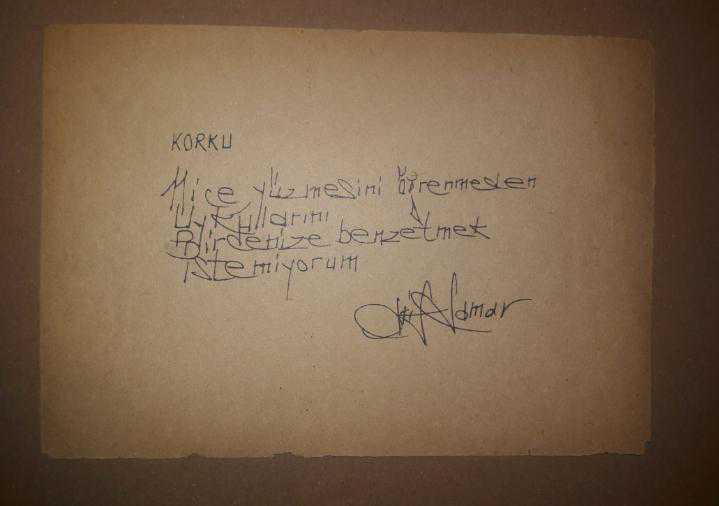 KORKU
Hiçe yüzmesini öğrenmeden
Uykularını
Bir denize benzetmek
istemiyorum